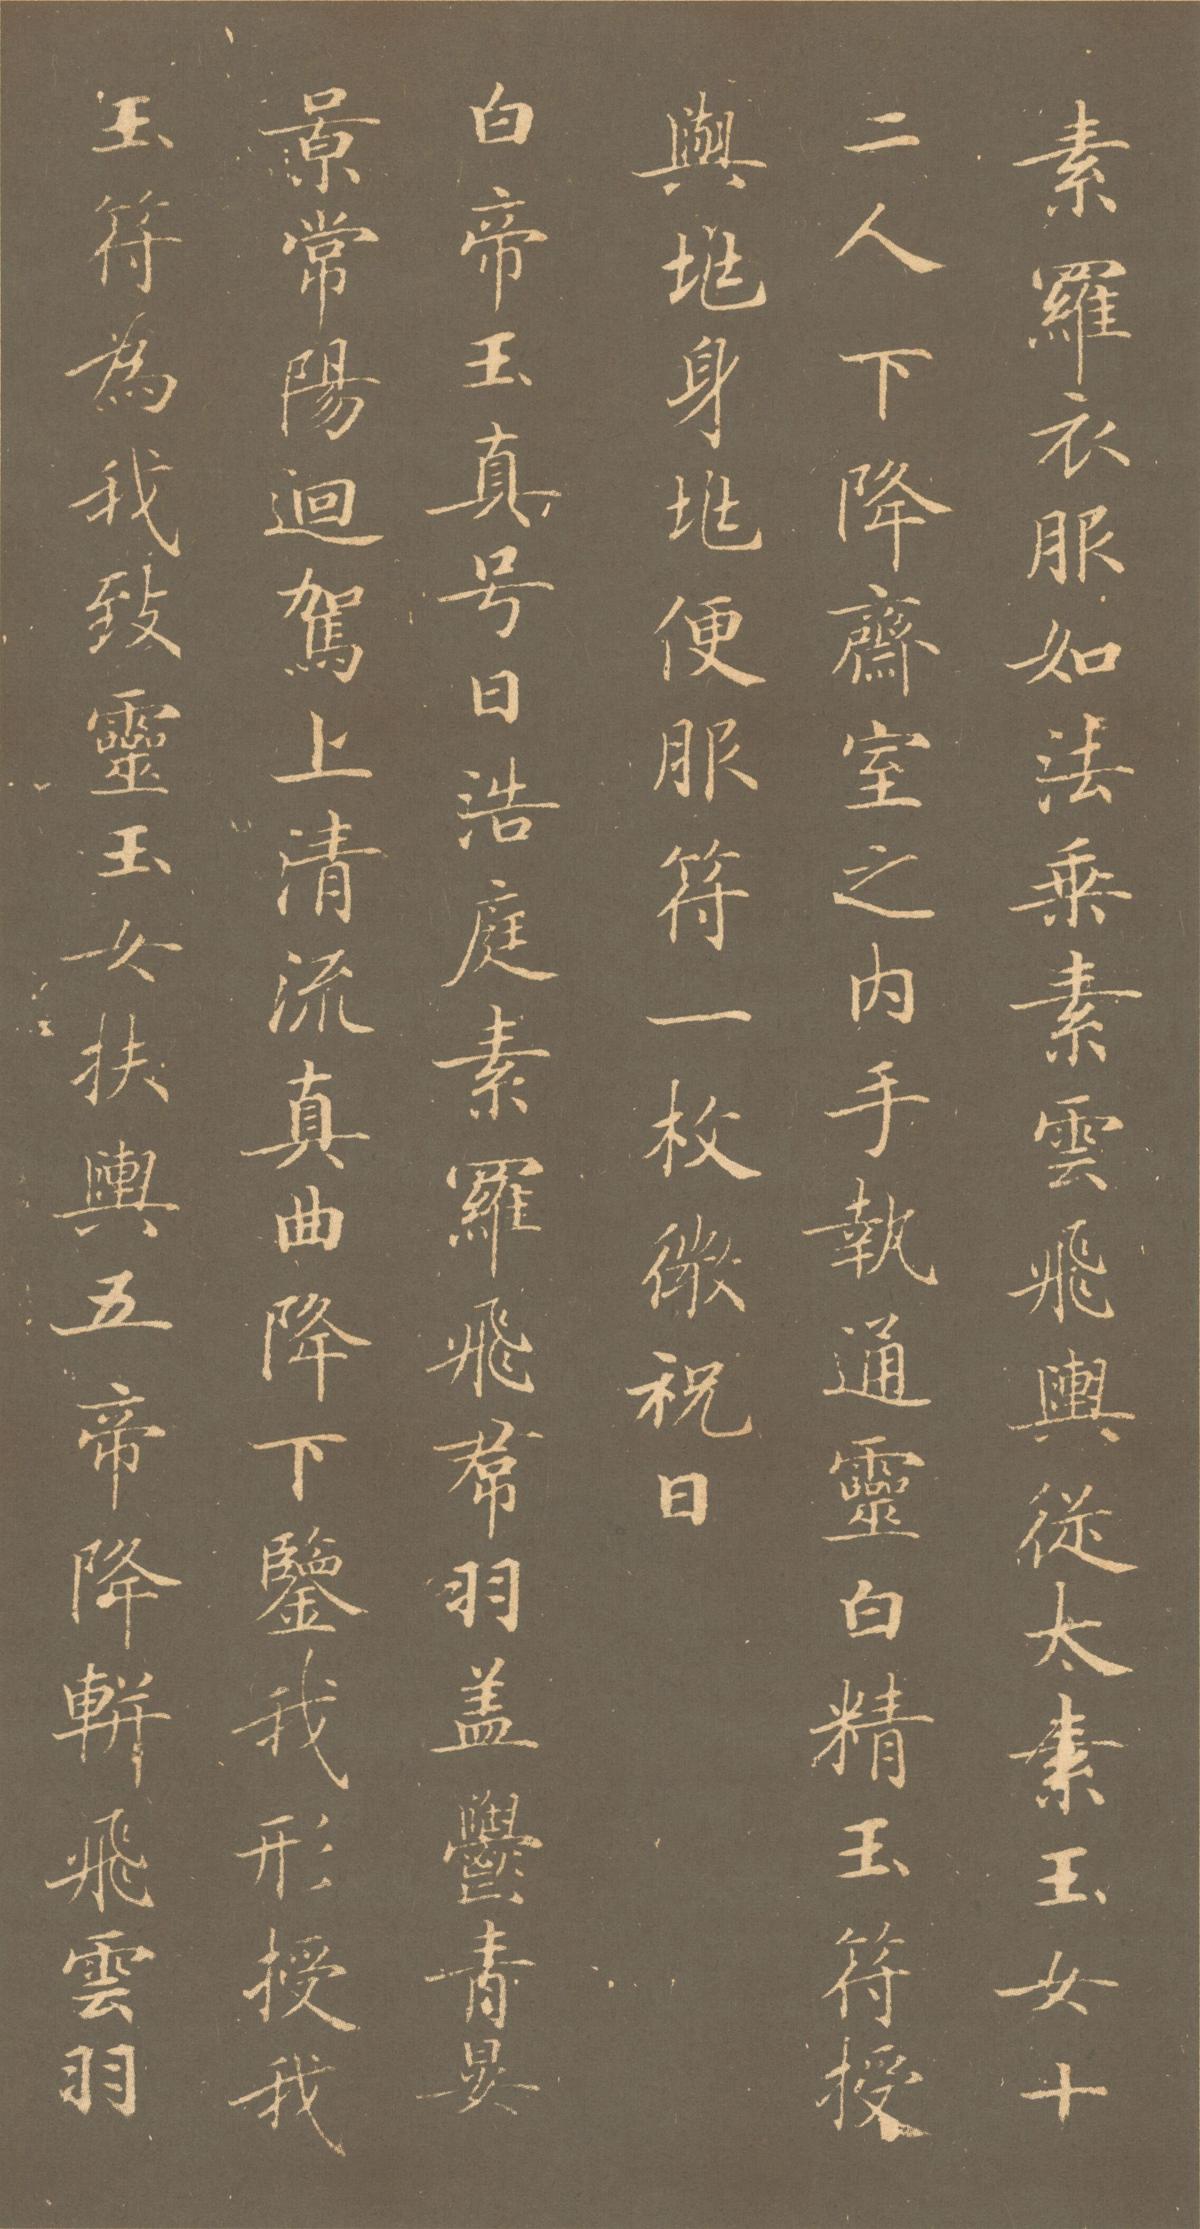 素羅衣服如法乘素雲飛輿從太素玉女十
二人下降齋室之內手執通靈白精玉符授
與垗身垗便服符一枚微祝曰
白帝玉真号曰浩庭素羅飛帬羽盖鬱青晏
景常陽迴駕上清流真曲降下鑒我形授我
玉符為我致靈玉女扶輿五帝降軿飛雲羽